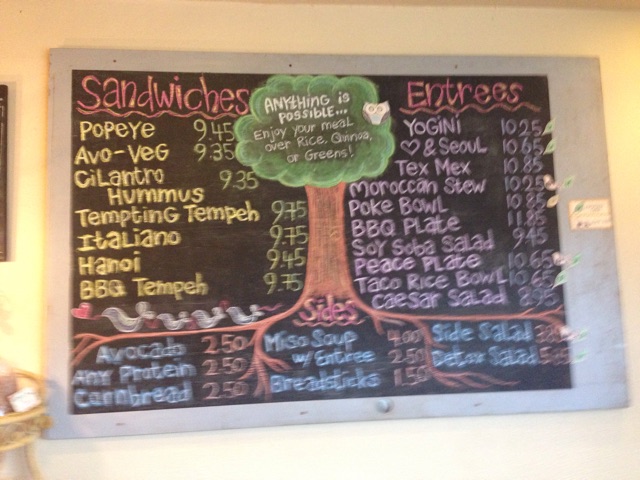 Sandwiches
Popeye 9.45
Avo-Veg 9.35
Cilantro
Hummus 9.35
Tempting Tempeh 9.75
Italiano 9.75
Hanoi 9.45
BBQ Tempeh 9.75
ANYTHING is
POSSIBLE...
Enjoy your meal
over Rice, Quinoa,
or Greens!
Entrees
Yogini 10.25
♡ & Seoul 10.65
Tex Mex 10.85
Moroccan Stew 10.25
Poke Bowl 10.85
BBQ Plate 11.85
Soy Soba Salad 9.45
Peace Plate 10.65
Taco Rice Bowl 10.65
Caesar Salad 8.95
Sides
Avocado 2.50
Any Protein 2.50
Cornbread 2.50
Miso Soup 4.00
w/ Entree 2.50
Breadsticks 1.50
Side Salad
Detox Salad